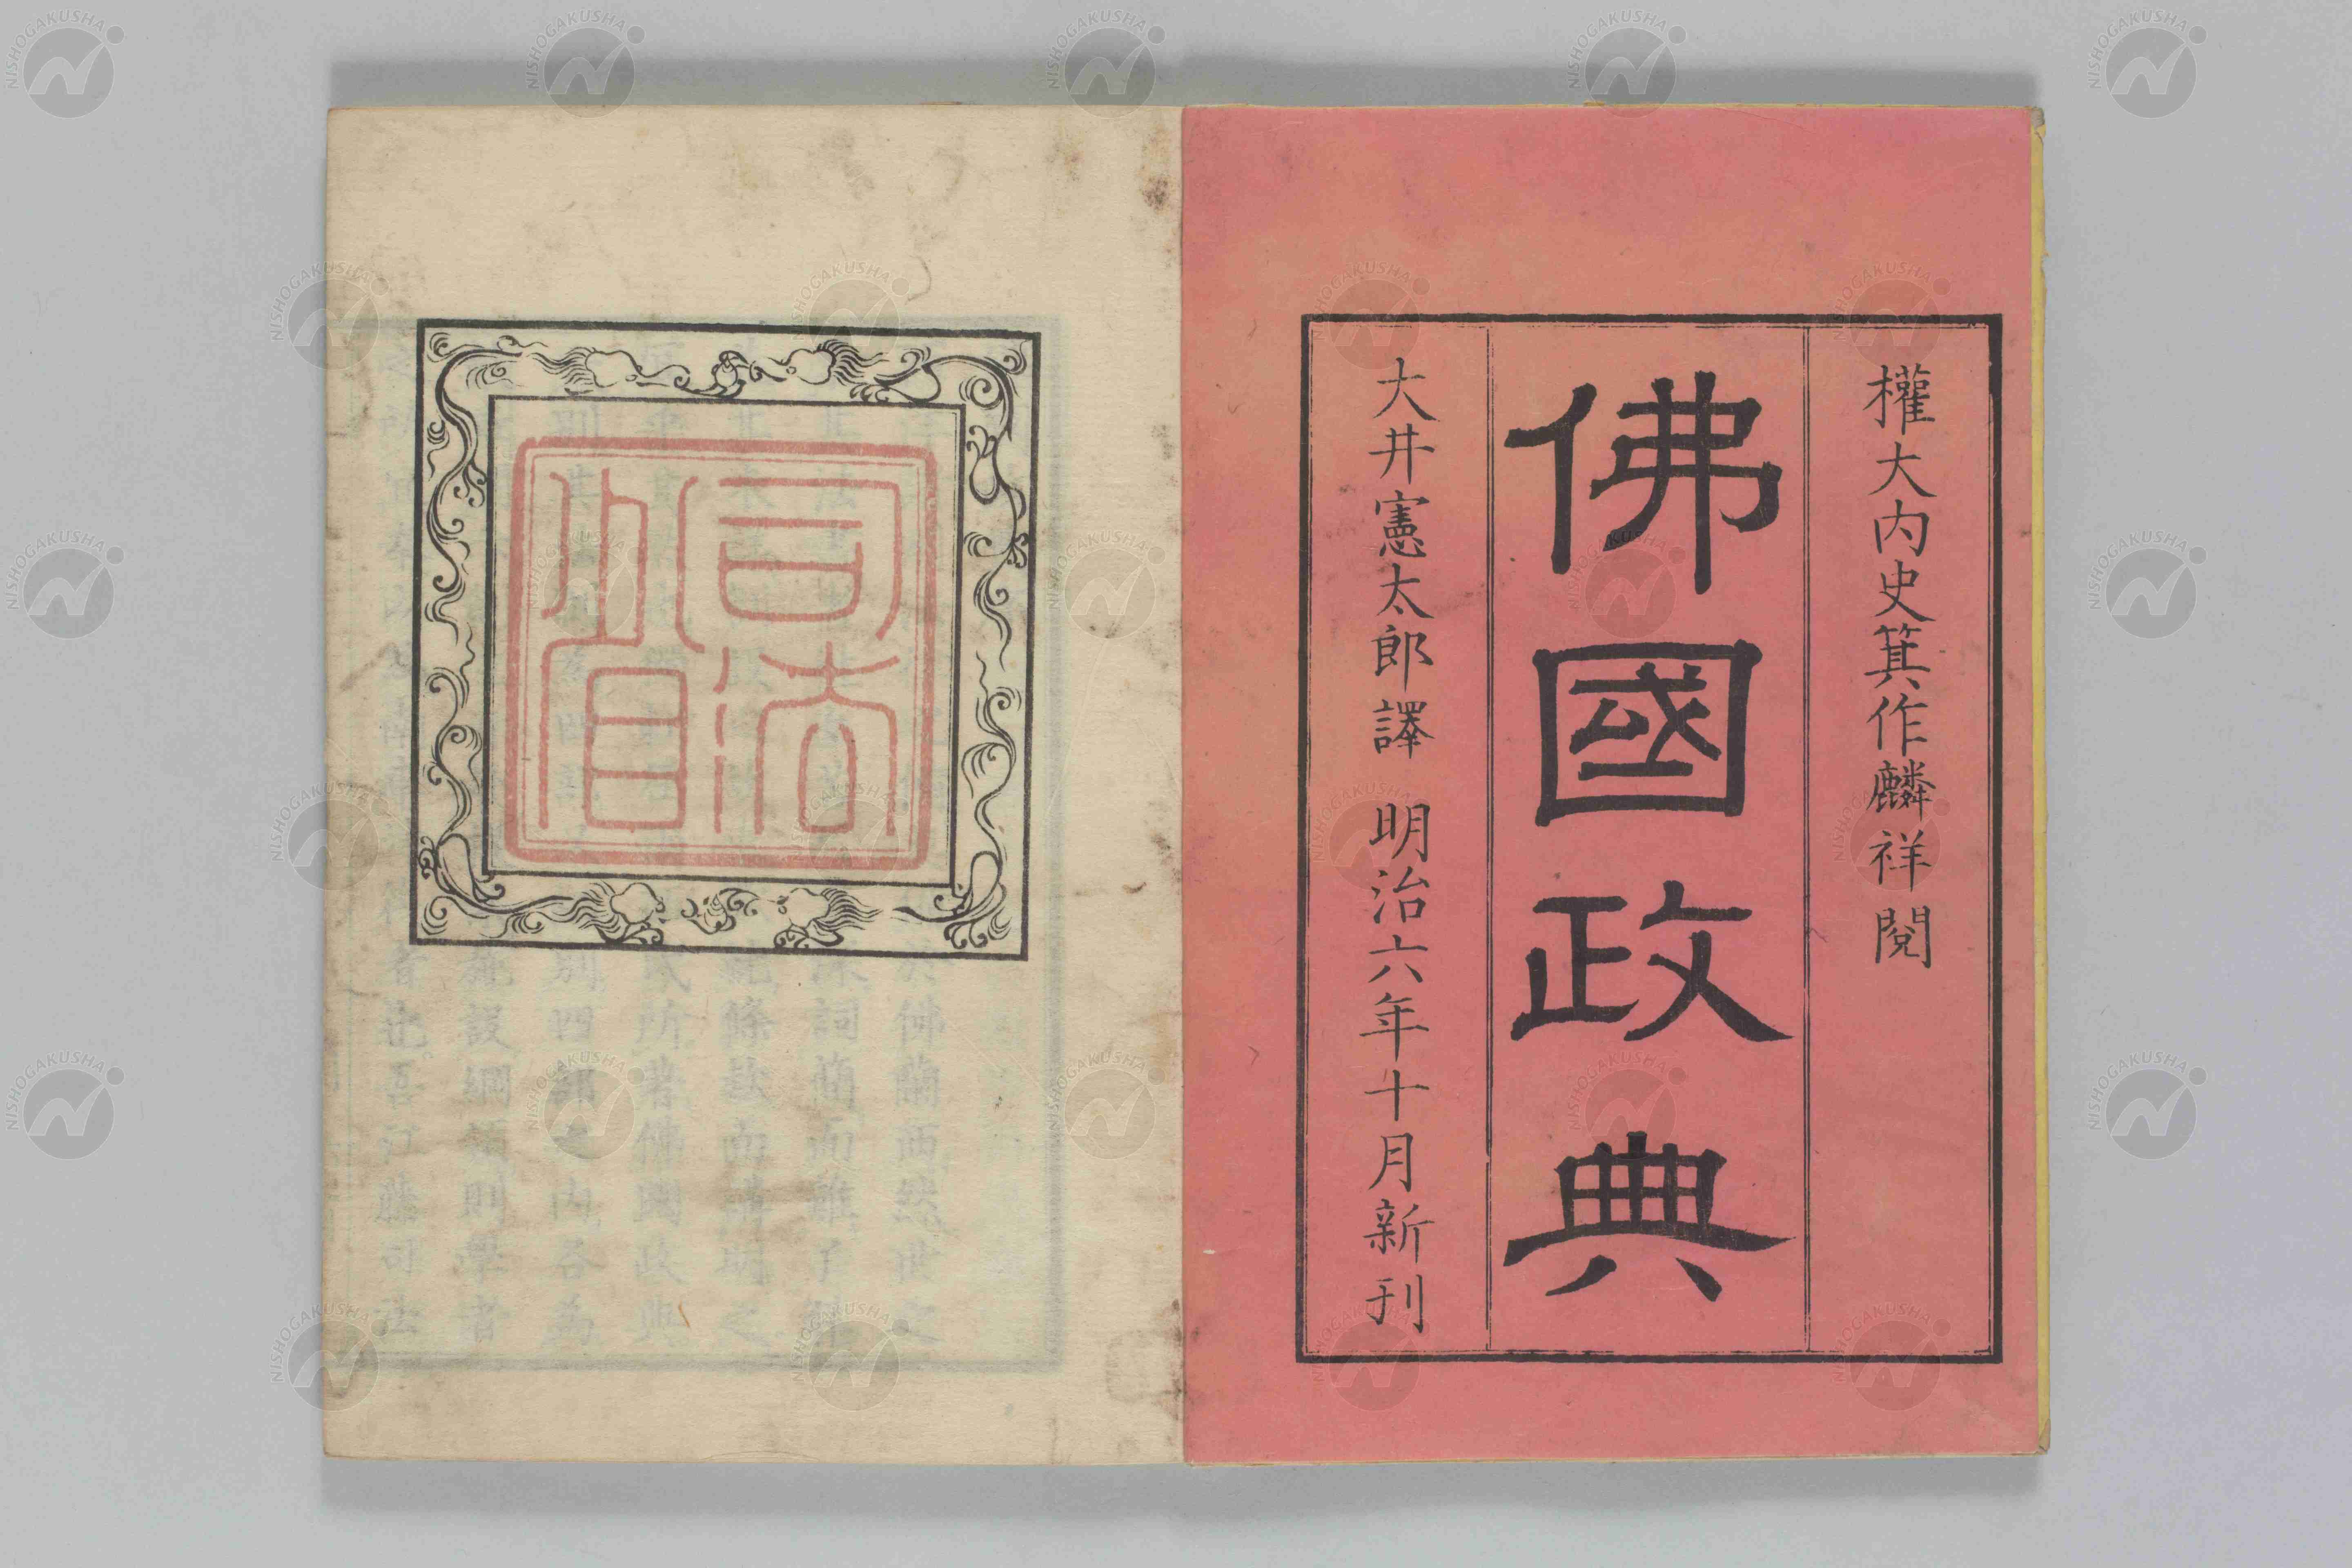 權大内史箕作麟祥閲
佛國政典
大井憲太郎譯 明治六年十月新刊
司法
省
NISHOGAKUSHA